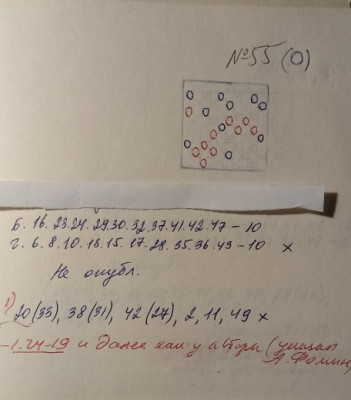 №55 (О)
Б. 16. 23. 24. 29. 30. 32. 37. 41. 42. 47 – 10
Ч. 6. 8. 10. 13. 15. 27. 28. 35. 36. 43 – 10 x
Не опубл.
1) 20(33), 38(31), 42(27), 2, 11, 49 x
– 1. 24-19 и далее как у автора (указал
А. Фомин)